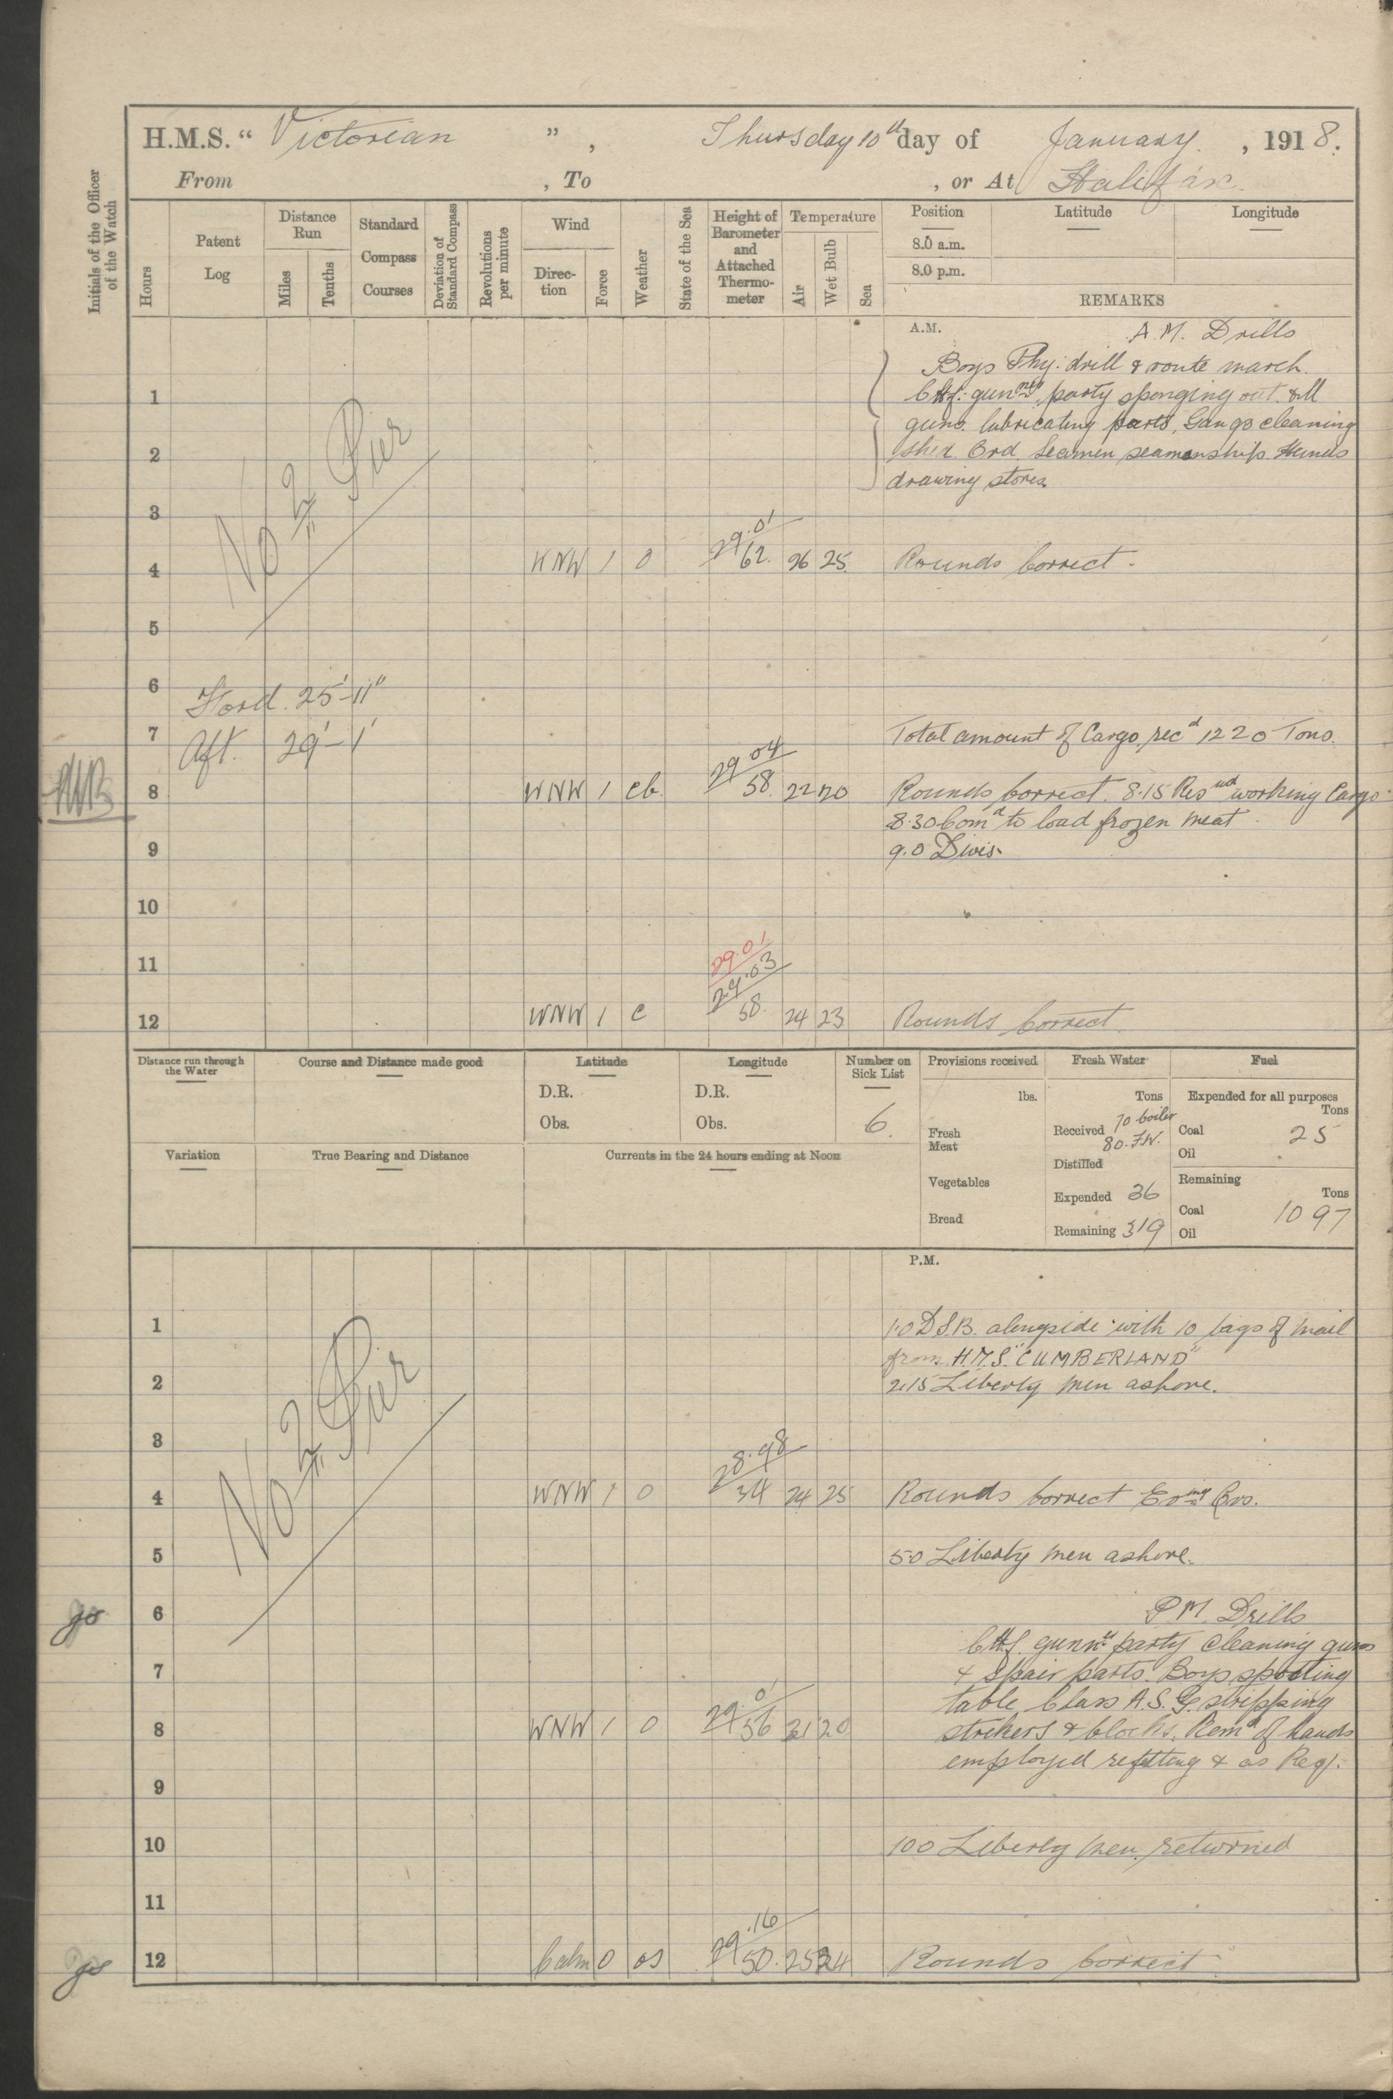 H.M.S. " Victorian " , Thursday 10th day of January. , 1918.
From , To , or At Halifax.
Initials of the Officer of the Watch
Hours
Patent Log
Distance Run
Miles
Tenths
Standard Compass Courses
Deviation of Standard Compass
Revolutions per minute
Wind
Direction
Force
Weather
State of the Sea
Height of Barometer and Attached Thermometer
Temperature
Air
Wet Bulb
Sea
Position
Latitude
Longitude
8.0 a.m.
8.0 p.m.
REMARKS
A.M.
A.M. Drills
Boys Phy. drill & route march.
party sponging out all
guns. lubricating parts, Gangs cleaning
shed. Ord. Seamen seamanship. Hands
drawing stores
No 2 Pier
1
2
3
4 WNW 1 o 29.01 62. 26 25. Rounds Correct.
5
6 Ford. 25'-11"
7 Aft. 29'-1' Total amount of Cargo recd 1220 Tons.
8 WNW 1 cb. 29.04 58. 22 20 Rounds Correct. 8.15 working Cargo
8.30 Comd to load frozen meat.
9 9.0 Divis.
10
11 29.01
12 WNW 1 c 29.03 58. 24 23 Rounds Correct
Distance run through the Water
Course and Distance made good
Latitude
D.R.
Obs.
Longitude
D.R.
Obs.
Number on Sick List
6.
Provisions received
lbs.
Fresh Meat
Vegetables
Bread
Fresh Water
Tons
Received 70 boiler
80. F.W.
Distilled
Expended 36
Remaining 319
Fuel
Expended for all purposes
Tons
Coal 25
Oil
Remaining
Tons
Coal 1097
Oil
Variation
True Bearing and Distance
Currents in the 24 hours ending at Noon
P.M.
No 2 Pier
1 1.0 D.S.B. alongside with 10 bags of mail
from H.M.S. "CUMBERLAND"
2 2.15 Liberty men ashore.
3
4 WNW 1 o 28.98 54 24 25 Rounds Correct
5 5.0 Liberty men ashore.
6 P.M. Drills
party cleaning guns
7 & spair parts. Boys spotting
table. Class A.S.G. stripping
8 WNW 1 o 29.01 56 21 20 strikers & blocks. Remd of hands
employed refitting & as Req.
9
10 10.0 Liberty men returned
11
12 Calm 0 os 29.16 50. 25 24 Rounds Correct